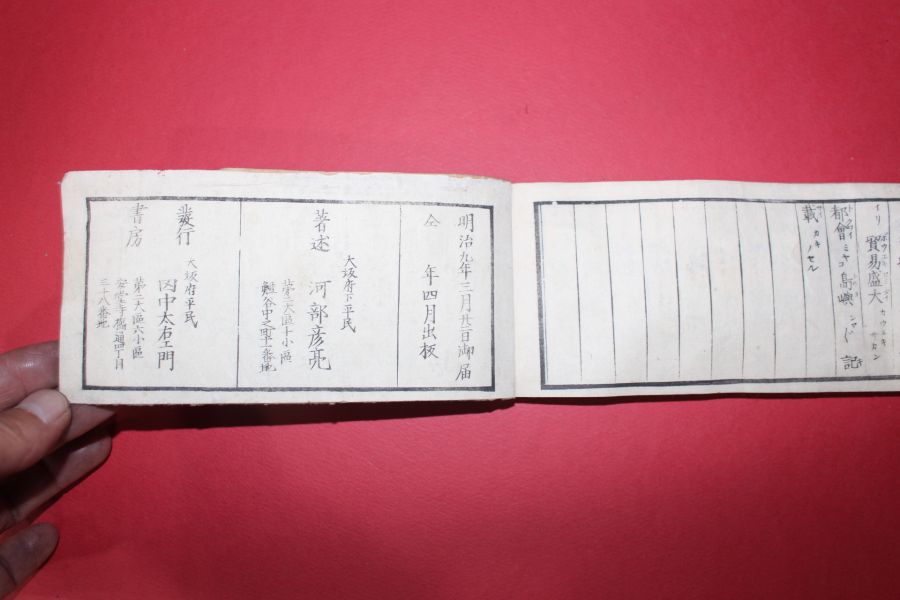 貿易盛大
ボウエキ カウエキ サカン
都會 ミヤコ 島嶼 シマ〴〵 記
載 カキノセル
明治九年三月廿二日御届
仝 年四月出板
大坂府下平民
著述 河部彦亮
第三大區十小區
鰻谷中之町十一番地
大坂府平民
發行 岡中太右衛門
書房
第二大區六小區
安堂寺橋通四丁目
三十八番地